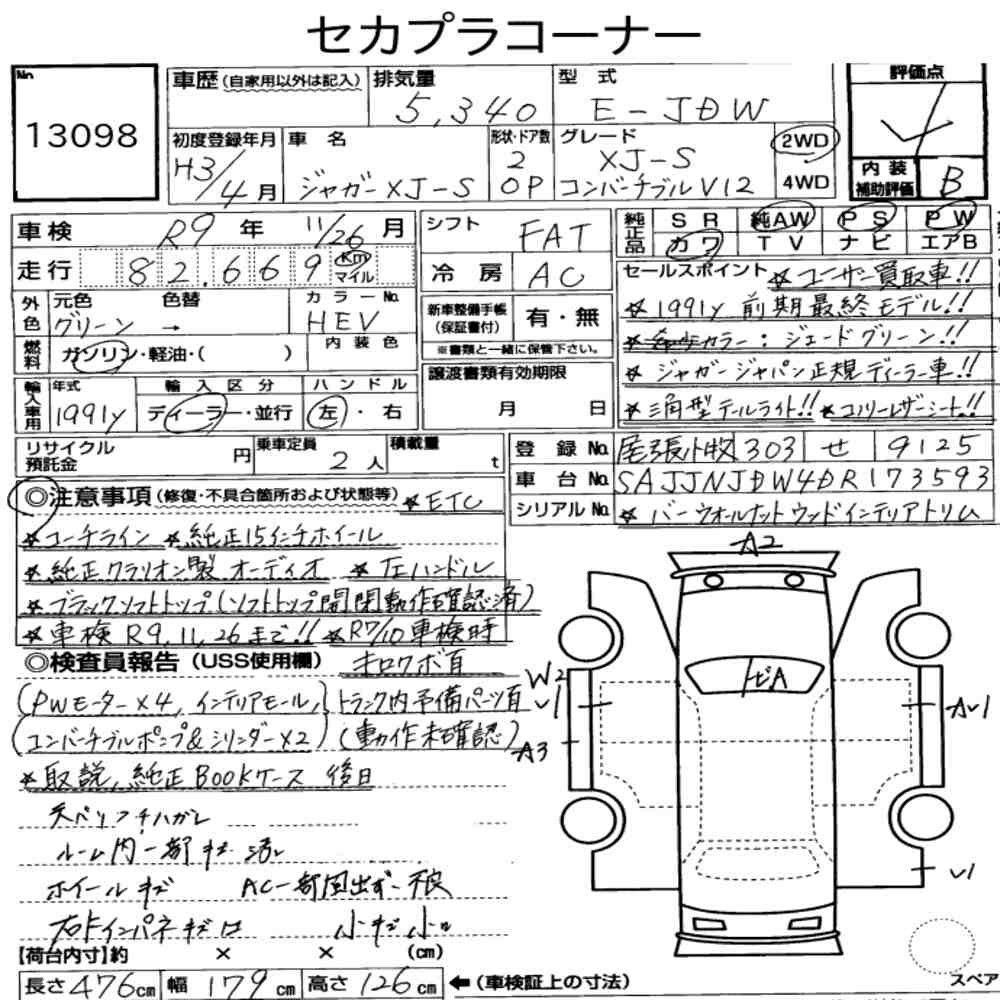 セカプラコーナー
No.
13098
車歴 (自家用以外は記入)
排気量
5,340
型 式
E-JDW
評価点
初度登録年月
H3/4月
車 名
ジャガーXJ-S
形状・ドア数
2
OP
グレード
XJ-S
コンバーチブルV12
2WD
4WD
内装
補助評価
B
車検 R9年 11/26月
走行 82,669 Km
マイル
シフト FAT
冷房 AC
純正品
SR 純AW PS PW
カワ TV ナビ エアB
外色
元色 色替
グリーン →
カラーNo.
HEV
内 装 色
燃料
ガソリン・軽油・( )
新車整備手帳
(保証書付)
有・無
※書類と一緒に保管下さい。
輸入車用
年式
1991y
輸 入 区 分
ディーラー・並行
ハ ン ド ル
左・右
譲渡書類有効期限
月 日
セールスポイント ★ユーザー買取車!!
★1991y 前期最終モデル!!
★希少カラー:ジェードグリーン!!
★ジャガージャパン正規ディーラー車!!
★三角型テールライト!! ★コノリーレザーシート!!
リサイクル
預託金
円
乗車定員
2人
積載量
t
登 録 No. 尾張小牧 303 せ 9125
車 台 No. SAJJNJDW4DR173593
シリアルNo. ★バーウォールナットウッドインテリアトリム
◎注意事項 (修復・不具合箇所および状態等) ★ETC
★コーチライン ★純正15インチホイール
★純正クラリオン製オーディオ ★左ハンドル
★ブラックソフトトップ(ソフトトップ開閉動作確認済)
★車検R9.11,26まで!! ★R7/10車検時
◎検査員報告 (USS使用欄) キロワボ有
(PWモーター×4,インテリアモール,
コンバーチブルポンプ&シリンダー×2)
トランク内予備パーツ有
(動作未確認)
★取説,純正BOOKケース 後日
天ベリフチハガレ
ルーム内一部キズ 汚レ
ホイールキズ AC一部固出ず不良
右ドインパネキズ
小キズ小凹
【荷台内寸】約 × × (cm)
長さ476cm 幅179cm 高さ126cm ←(車検証上の寸法)
A2
トビA
W2
V1
A3
AV1
V1
スペア